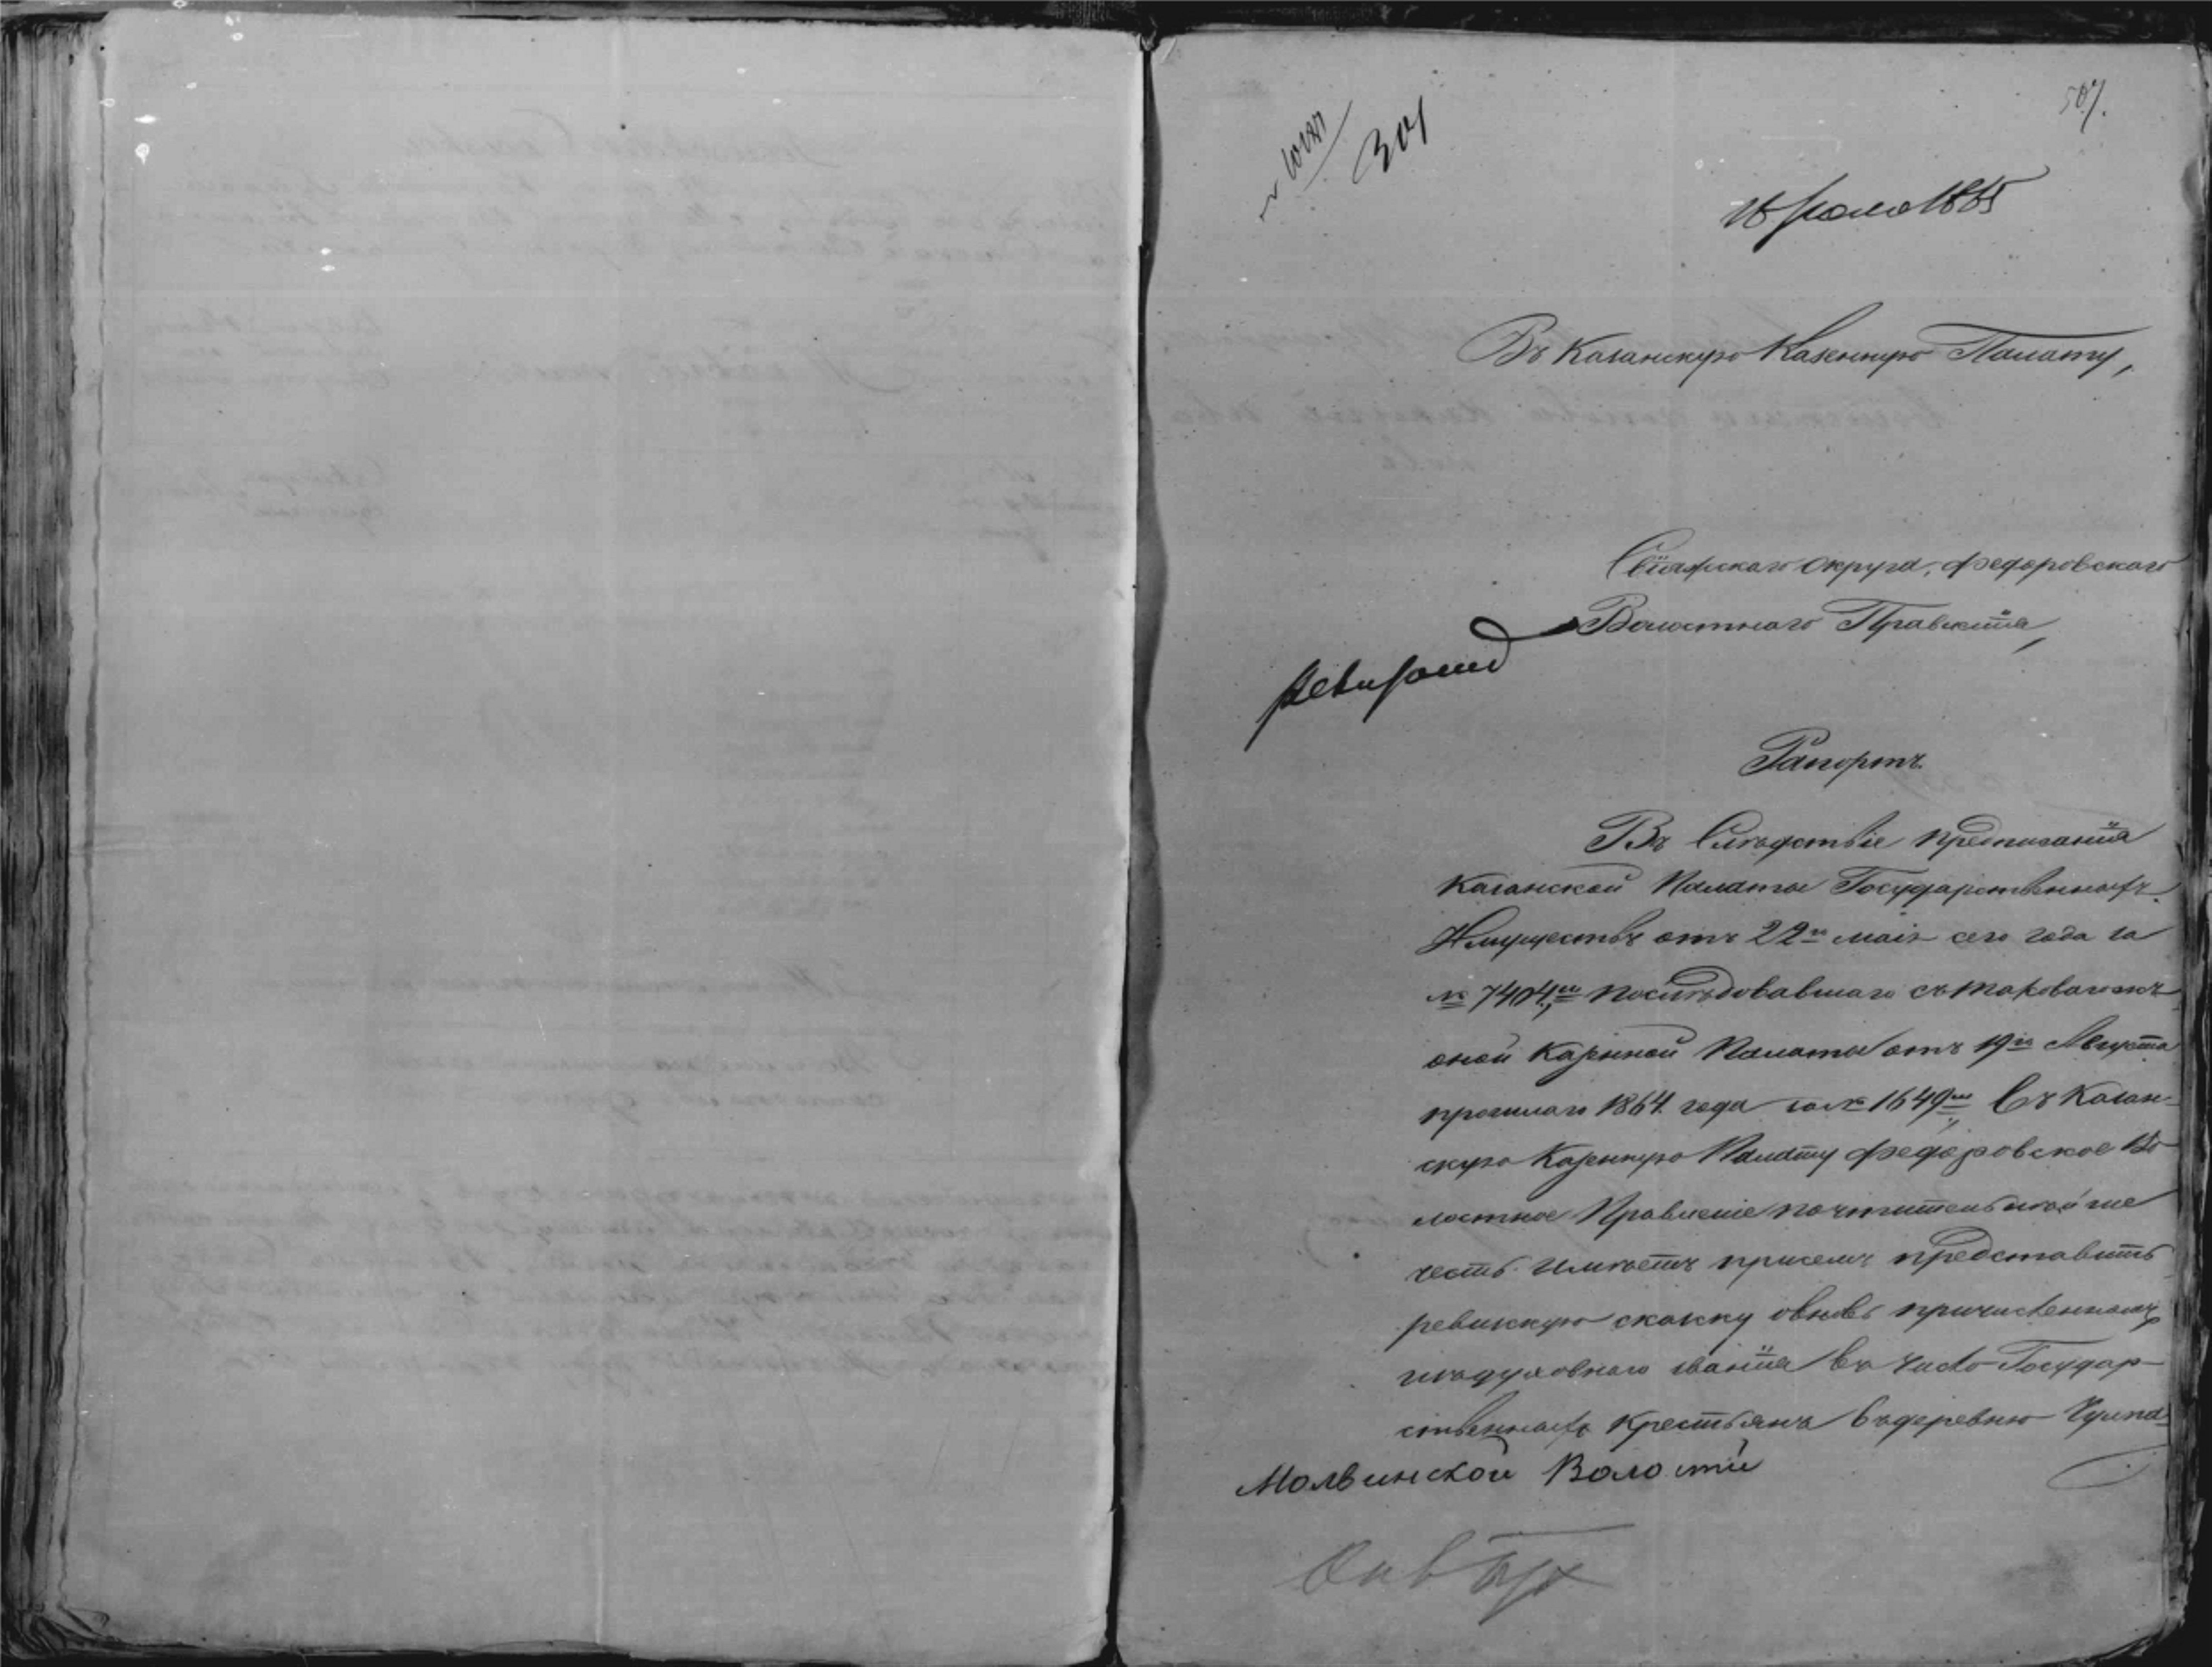 507.
301
16 Юля 1865
Въ Казанскую Казенную Палату,
Свіяжскаго Округа, Федоровскаго
Волостнаго Правленія,
Рапортъ.
Въ Слѣдствіе предписанія
Казанской Палаты Государственныхъ
Имуществъ отъ 22го маія сего года за
№ 7404м послѣдовавшаго съ таковагожъ
оной Казенной Палаты отъ 19го Августа
прошлаго 1864 года за № 1649м Въ Казан-
скую Казенную Палату Федоровское Во-
лостное Правленіе почтительнѣйше
честь имѣетъ присемъ представить
ревизскую сказку овновь причисленномъ
издуховнаго званія въ число Государ-
ственныхъ Крестьянъ въ деревню
Молвинской Волости